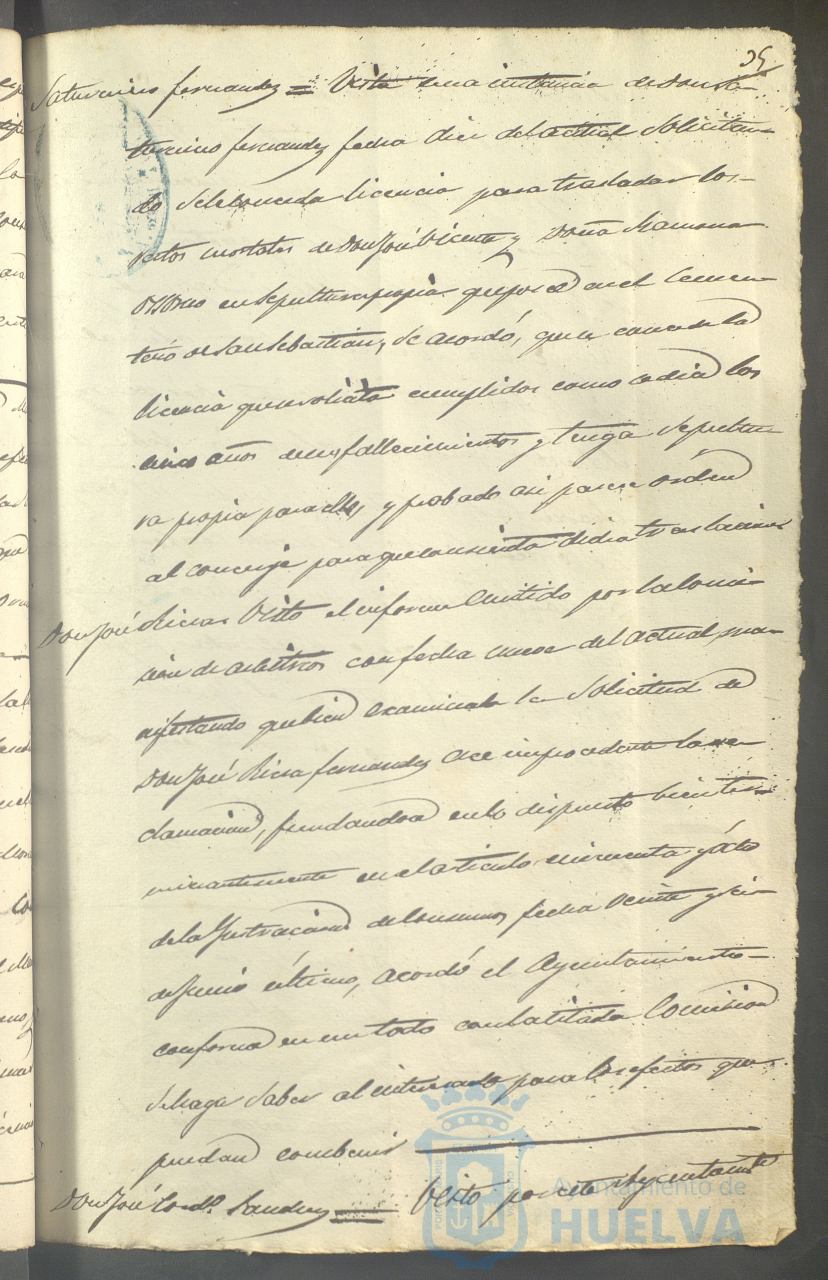 35
Saturnino Fernandez = Vista una instancia de Don Sa-
turnino Fernandez fecha diez del actual solicitan-
do se le conceda licencia para trasladar los
restos mortales de Don José Vicente y Doña Ramona
en sepultura propia que posee en el Cemen-
terio de San Sebastian, se acordó, que se concede la
licencia que solicita cumplidos como sedia los
cinco años de sus fallecimientos y tenga sepultu-
ra propia para ellos, y probado asi pase orden
al conserje para que consienta dicha traslacion
Don José Riera Visto el informe emitido por la Comi-
sion de arbitrios con fecha nueve del actual, ma-
nifestando que bien examinada la solicitud de
Don José Riera Fernandez ase improcedente la re-
clamacion, fundandose en lo dispuesto bien ter-
minantemente en el articulo cincuenta y ocho
de la Ynstruccion de Consumos fecha veinte y
de Junio último, acordó el Ayuntamiento
conforme en un todo con la citada Comision
se haga saber al interesado para los efectos que
puedan combenir
Don José Sanchez = Visto por este Ayuntamto
Ayuntamiento de
HUELVA